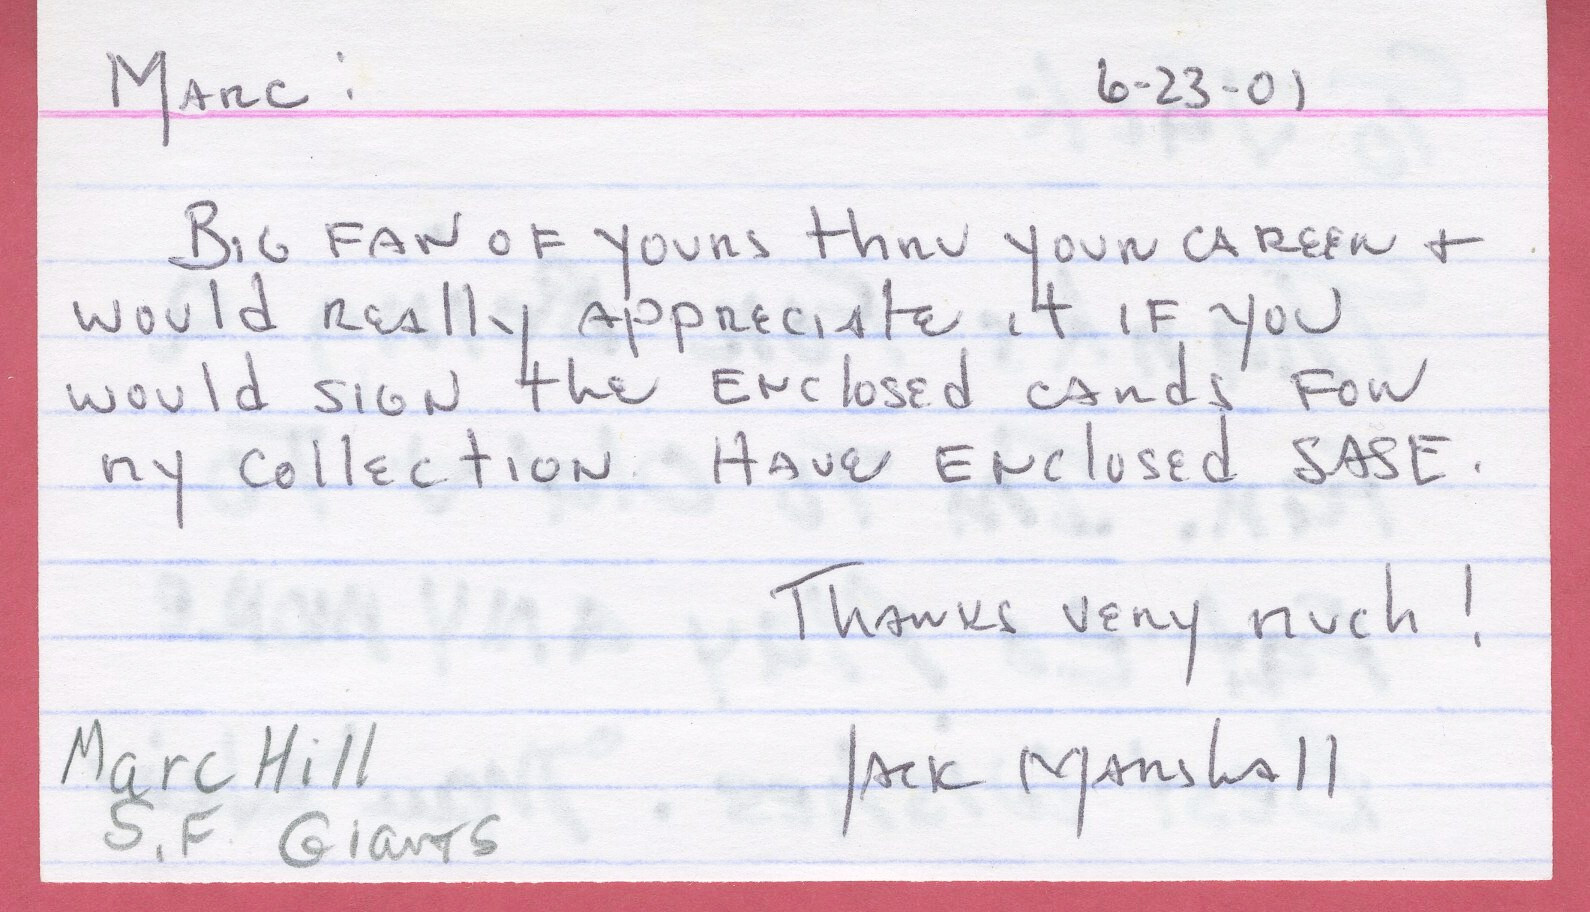 Marc: 6-23-01
Big fan of yours thru your career +
would really appreciate it if you
would sign the enclosed cards for
my collection. Have enclosed SASE.
Thanks very much!
Marc Hill Jack Marshall
S.F. Giants